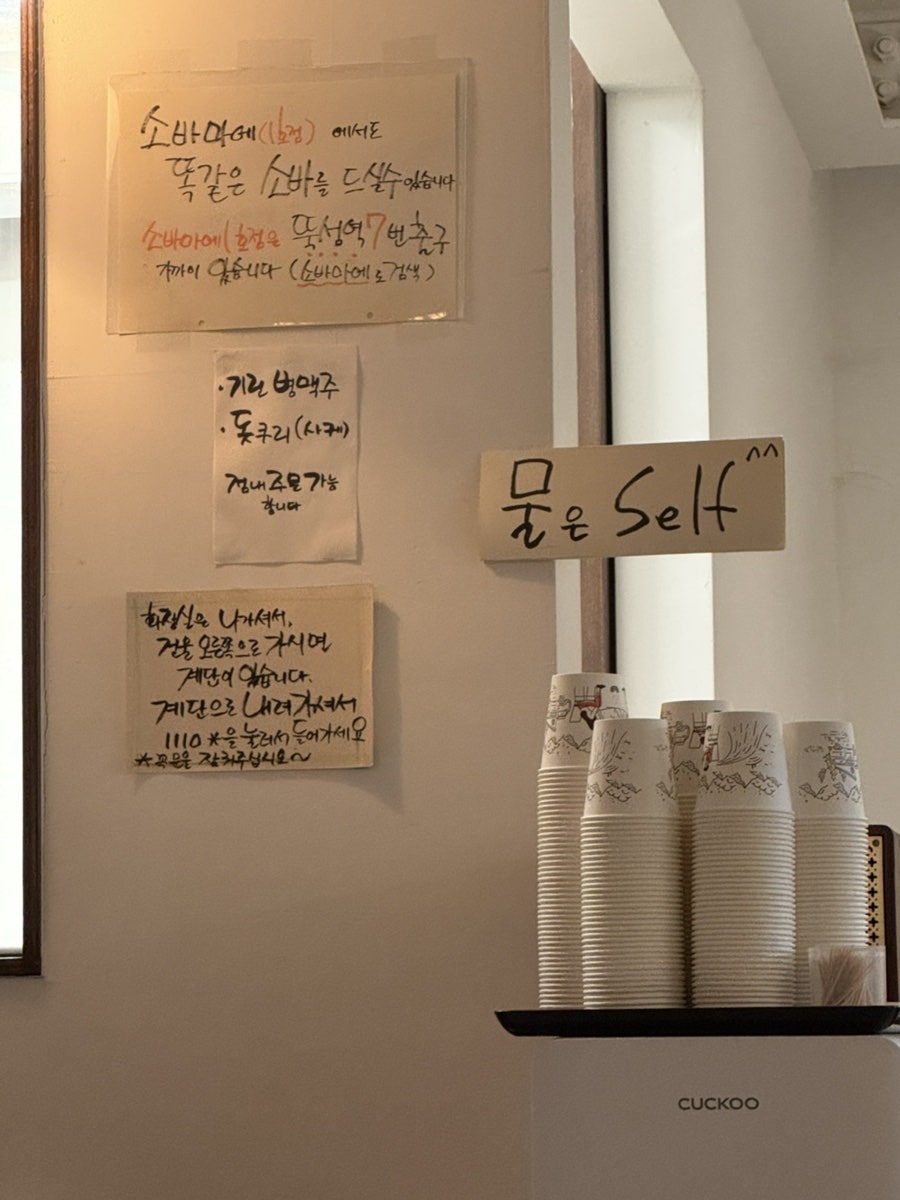 소바마에(1호점) 에서도
똑같은 소바를 드실수 있습니다
소바마에1호점은 뚝섬역 7번출구
가까이 있습니다 (소바마에로 검색)
· 기린 병맥주
· 돗쿠리 (사케)
점내 주문 가능
합니다
물은 Self ^^
화장실은 나가셔서,
건물 오른쪽으로 가시면
계단이 있습니다.
계단으로 내려가셔서
1110 *을 눌러서 들어가세요
* 꼭 문을 닫아주십시오~
CUCKOO